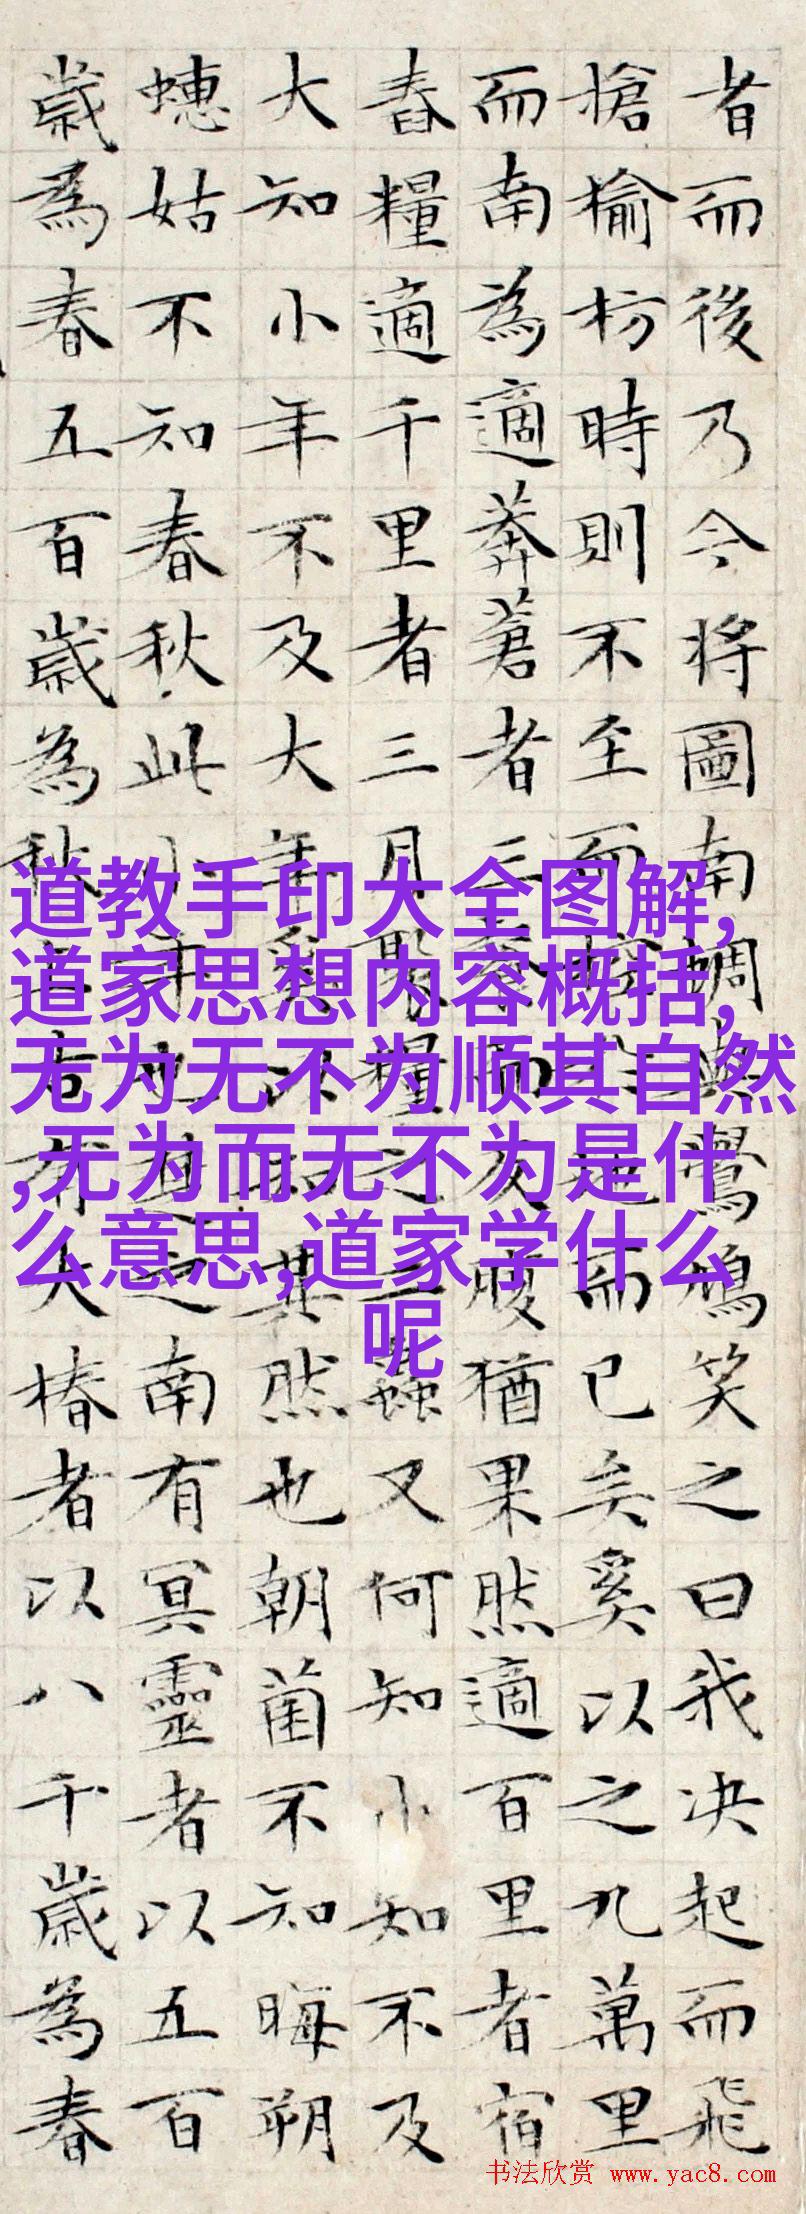 者而後乃今将圖南蜩與鷽鳩笑之曰我决起而飛
搶榆枋時則不至而控於地而已矣奚以之九萬里
而南為適莽蒼者三餐而反腹猶果然適百里者宿
舂糧適千里者三月聚糧之二蟲又何知小知不及
大知小年不及大年奚以知其然也朝菌不知晦朔
蟪姑不知春秋此小年也楚之南有冥靈者以五百
歲為春五百歲為秋上古有大椿者以八千歲為春
道教手印大全图解,
道家思想内容概括,
无为无不为顺其自然
,无为而无不为是什
么意思,道家学什么
呢
书法欣赏 www.yac8.com